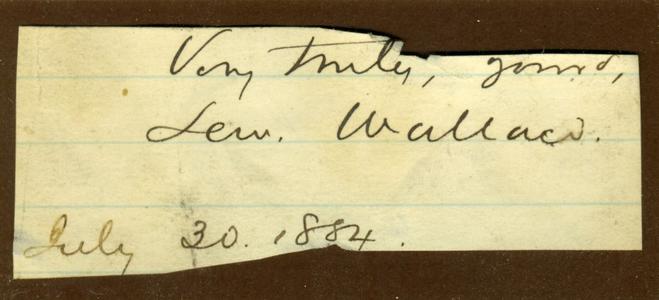 Very truly, yours,
Lew. Wallace.
July 30. 1884.